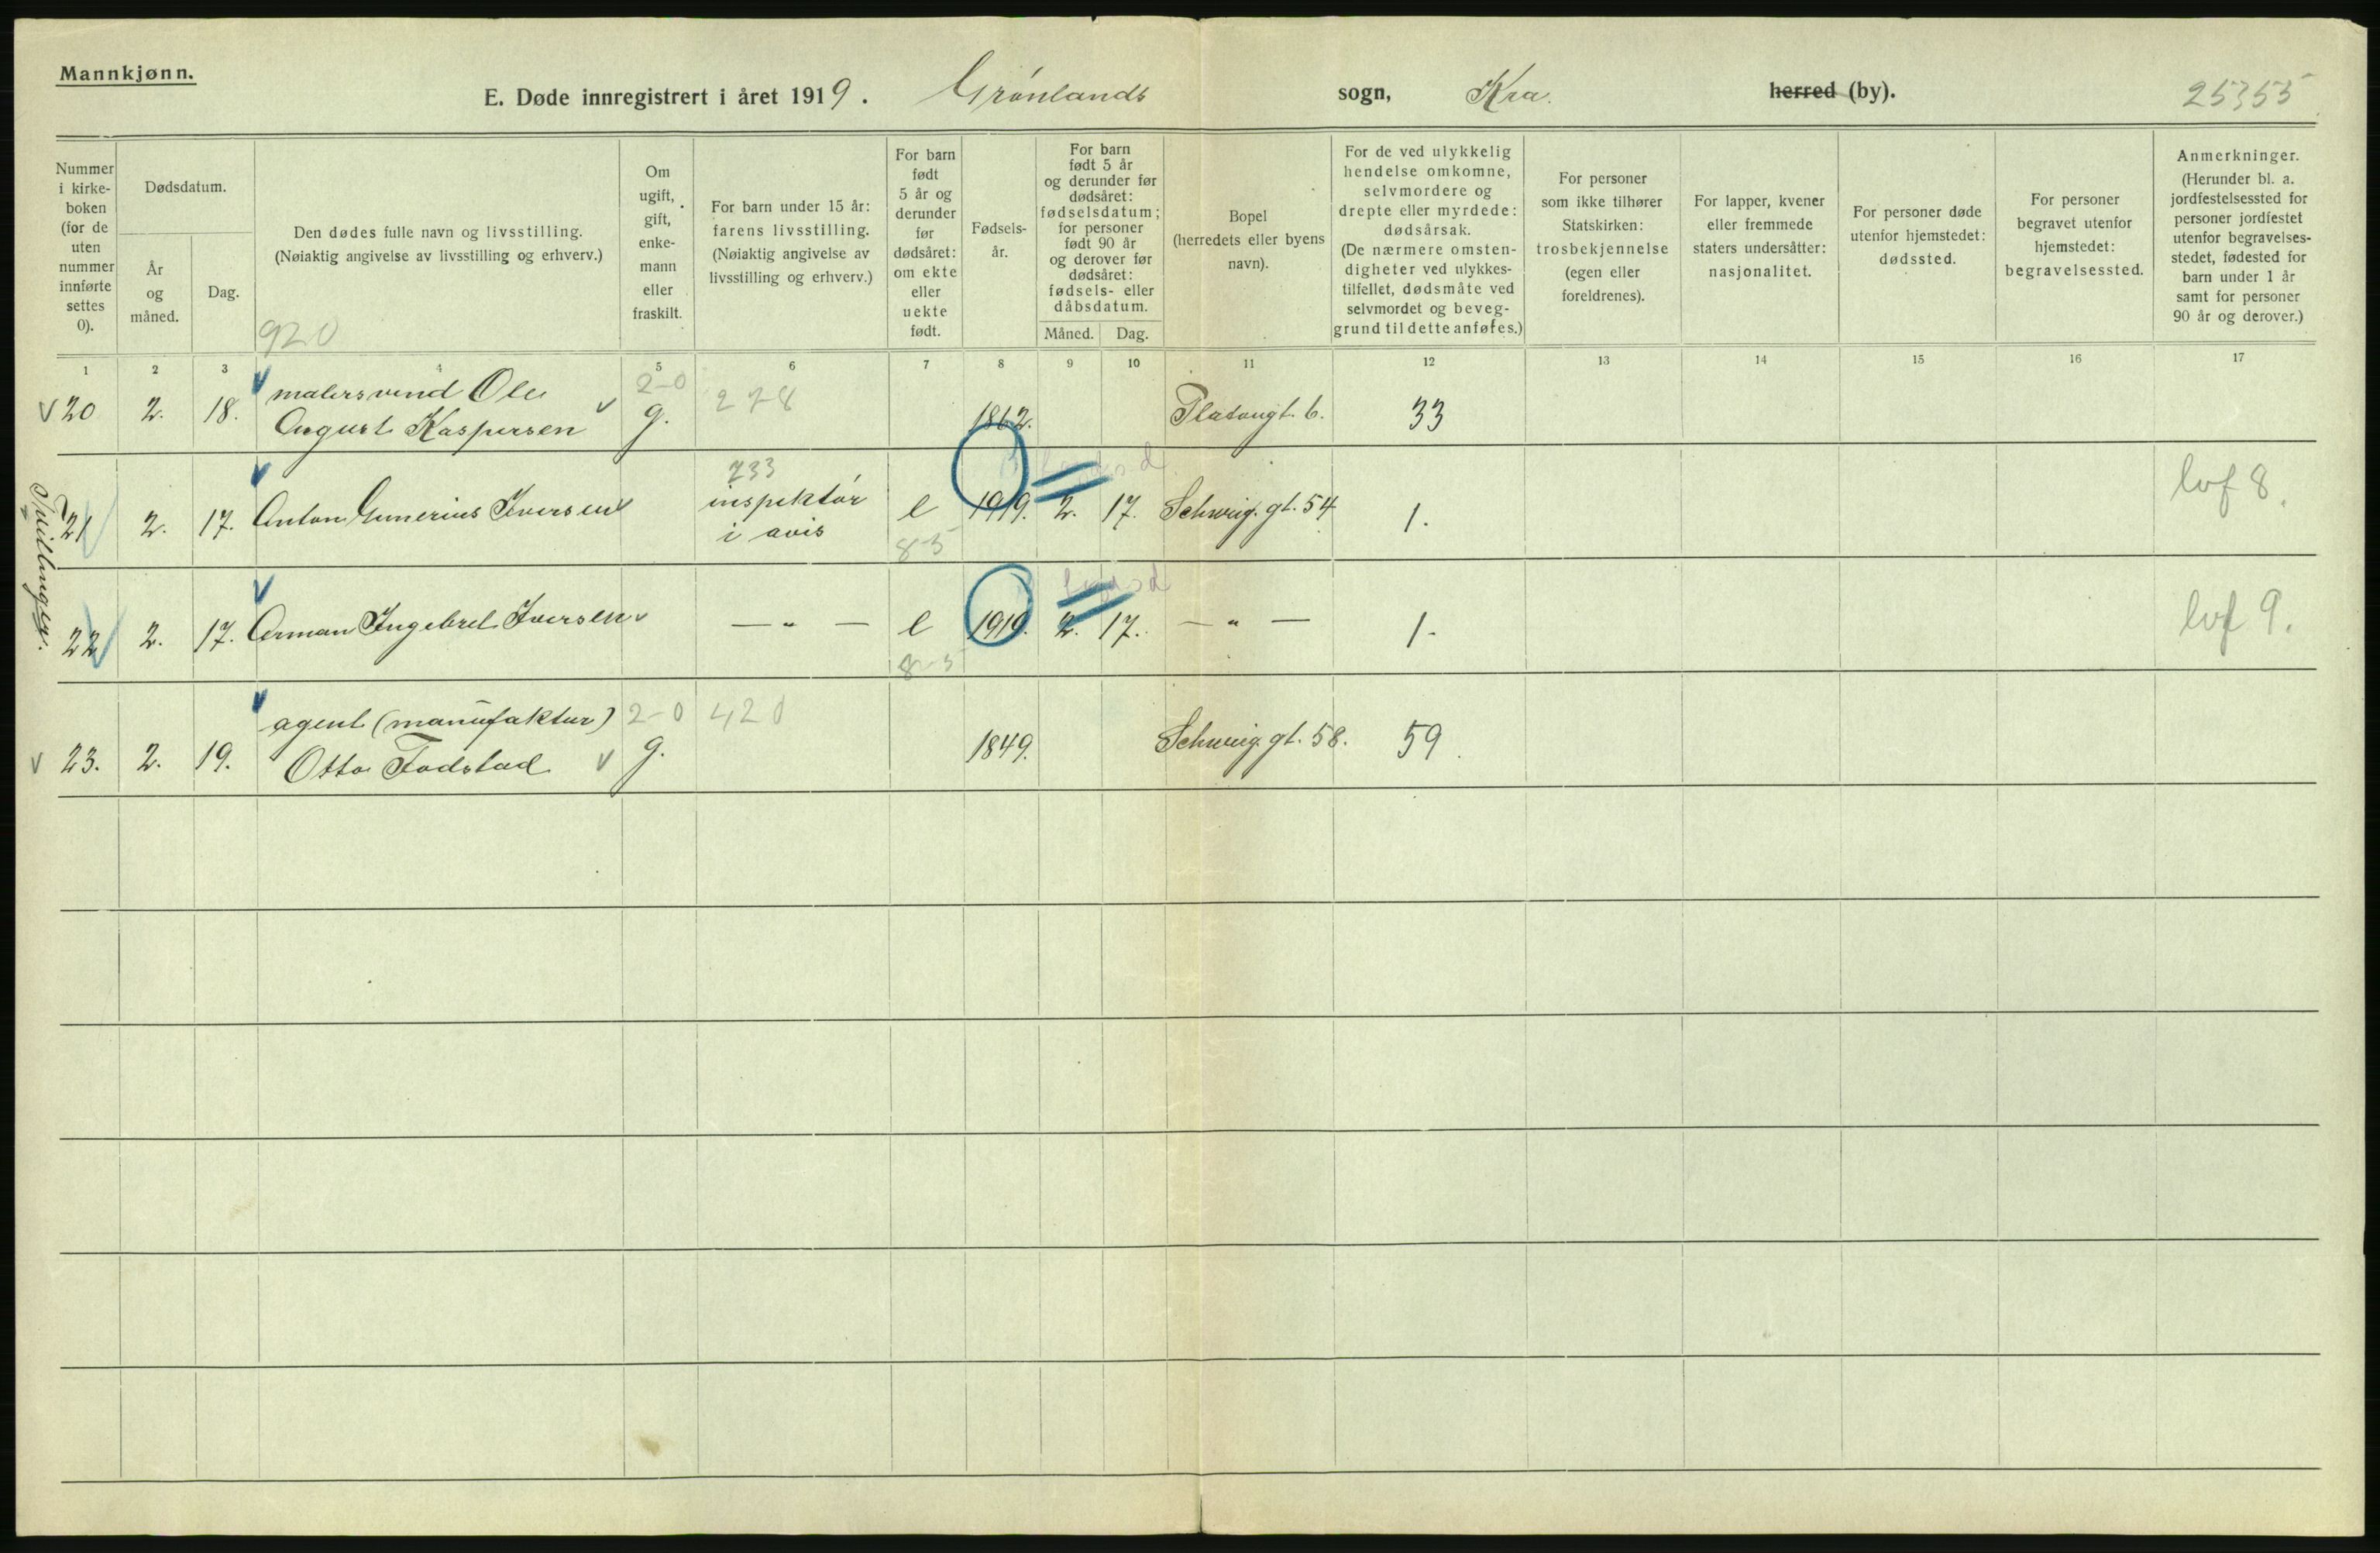 Mannkjønn.
E. Døde innregistrert i året 1919. Grønlands sogn, Kra. herred (by). 25355
Nummer i kirke-boken (for de uten nummer innførte settes 0).
Dødsdatum.
År og måned.
Dag.
Den dødes fulle navn og livsstilling.
(Nøiaktig angivelse av livsstilling og erhverv.)
920
Om ugift, gift, enke-mann eller fraskilt.
For barn under 15 år: farens livsstilling. (Nøiaktig angivelse av livsstilling og erhverv.)
For barn født 5 år og derunder før dødsåret: om ekte eller uekte født.
Fødsels-år.
For barn født 5 år og derunder før dødsåret: fødselsdatum; for personer født 90 år og derover før dødsåret: fødsels- eller dåbsdatum.
Måned. Dag.
Bopel (herredets eller byens navn).
For de ved ulykkelig hendelse omkomne, selvmordere og drepte eller myrdede: dødsårsak. (De nærmere omsten-digheter ved ulykkes-tilfellet, dødsmåte ved selvmordet og beveg-grund til dette anføres.)
For personer som ikke tilhører Statskirken: trosbekjennelse (egen eller foreldrenes).
For lapper, kvener eller fremmede staters undersåtter: nasjonalitet.
For personer døde utenfor hjemstedet: dødssted.
For personer begravet utenfor hjemstedet: begravelsessted.
Anmerkninger. (Herunder bl. a. jordfestelsessted for personer jordfestet utenfor begravelses-stedet, fødested for barn under 1 år samt for personer 90 år og derover.)
1 2 3 4 5 6 7 8 9 10 11 12 13 14 15 16 17
malersvend Ole 2-0 278
20 2. 18. August Kaspersen g. 1862. Platougt. 6. 33
Tvillinger.
733
21 2. 17. Anton Gunerius Iversen inspektør e 1919. 2. 17. Schweig. gt. 54 1. lvf 8.
i avis 8-5
22 2. 17. Arman Ingebret Iversen — " — e 1919. 2. 17. — " — 1. lvf 9.
8-5
agent (manufaktur) 2-0 420
23. 2. 19. Otto Fodstad g. 1849. Schweig. gt. 58. 59.